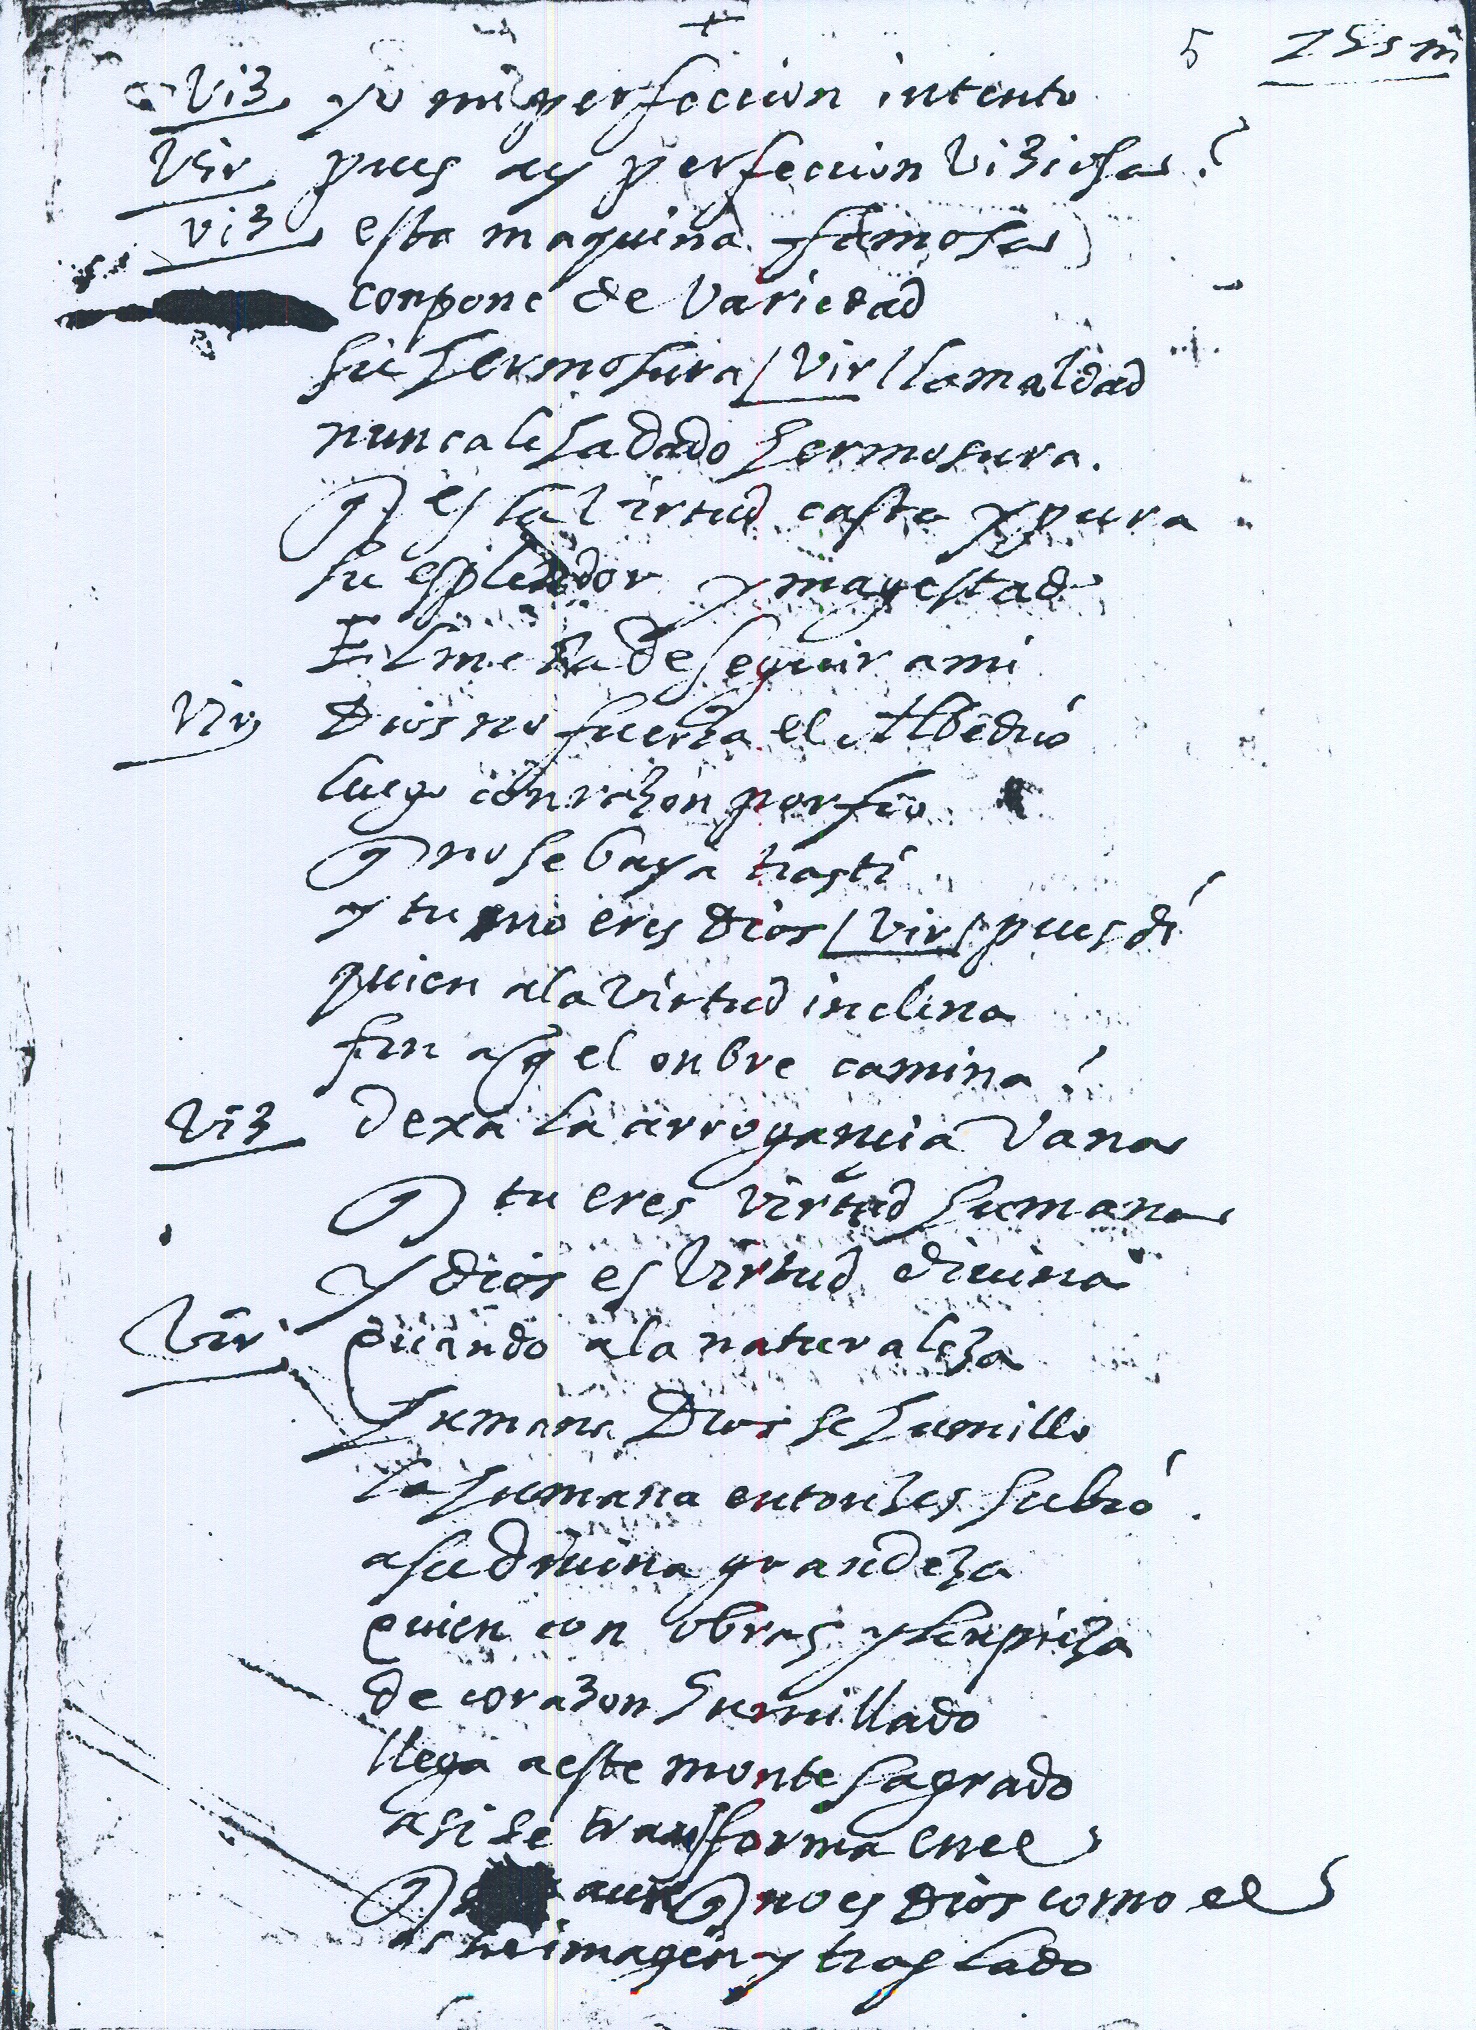 +
5
Viz yo mi perfeccion intento
Vir pues ay perfeccion viziosa?
viz esta maquina famosa
conpone de variedad
su hermosura / Vir / la maldad
nunca le ha dado hermosura.
q es la virtud casta y pura
su esplendor y magestad
El me ha de seguir a mi
Vir Dios no fuerza el Albedrio
luego con razon porfio
q no se baya tras ti
y tu no eres Dios / Vir / pues di
quien a la virtud inclina
fin a q el onbre camina?
Viz dexa la arrogancia vana
q tu eres virtud humana
y dios es virtud divina
Vir quando a la naturaleza
humana Dios se humillo
la humana entonzes subio
a su divina grandeza
quien con obras y linpieza
de corazon humillado
llega a este monte sagrado
asi se transforma en el
q aunq no es Dios como el
es su imagen y traslado